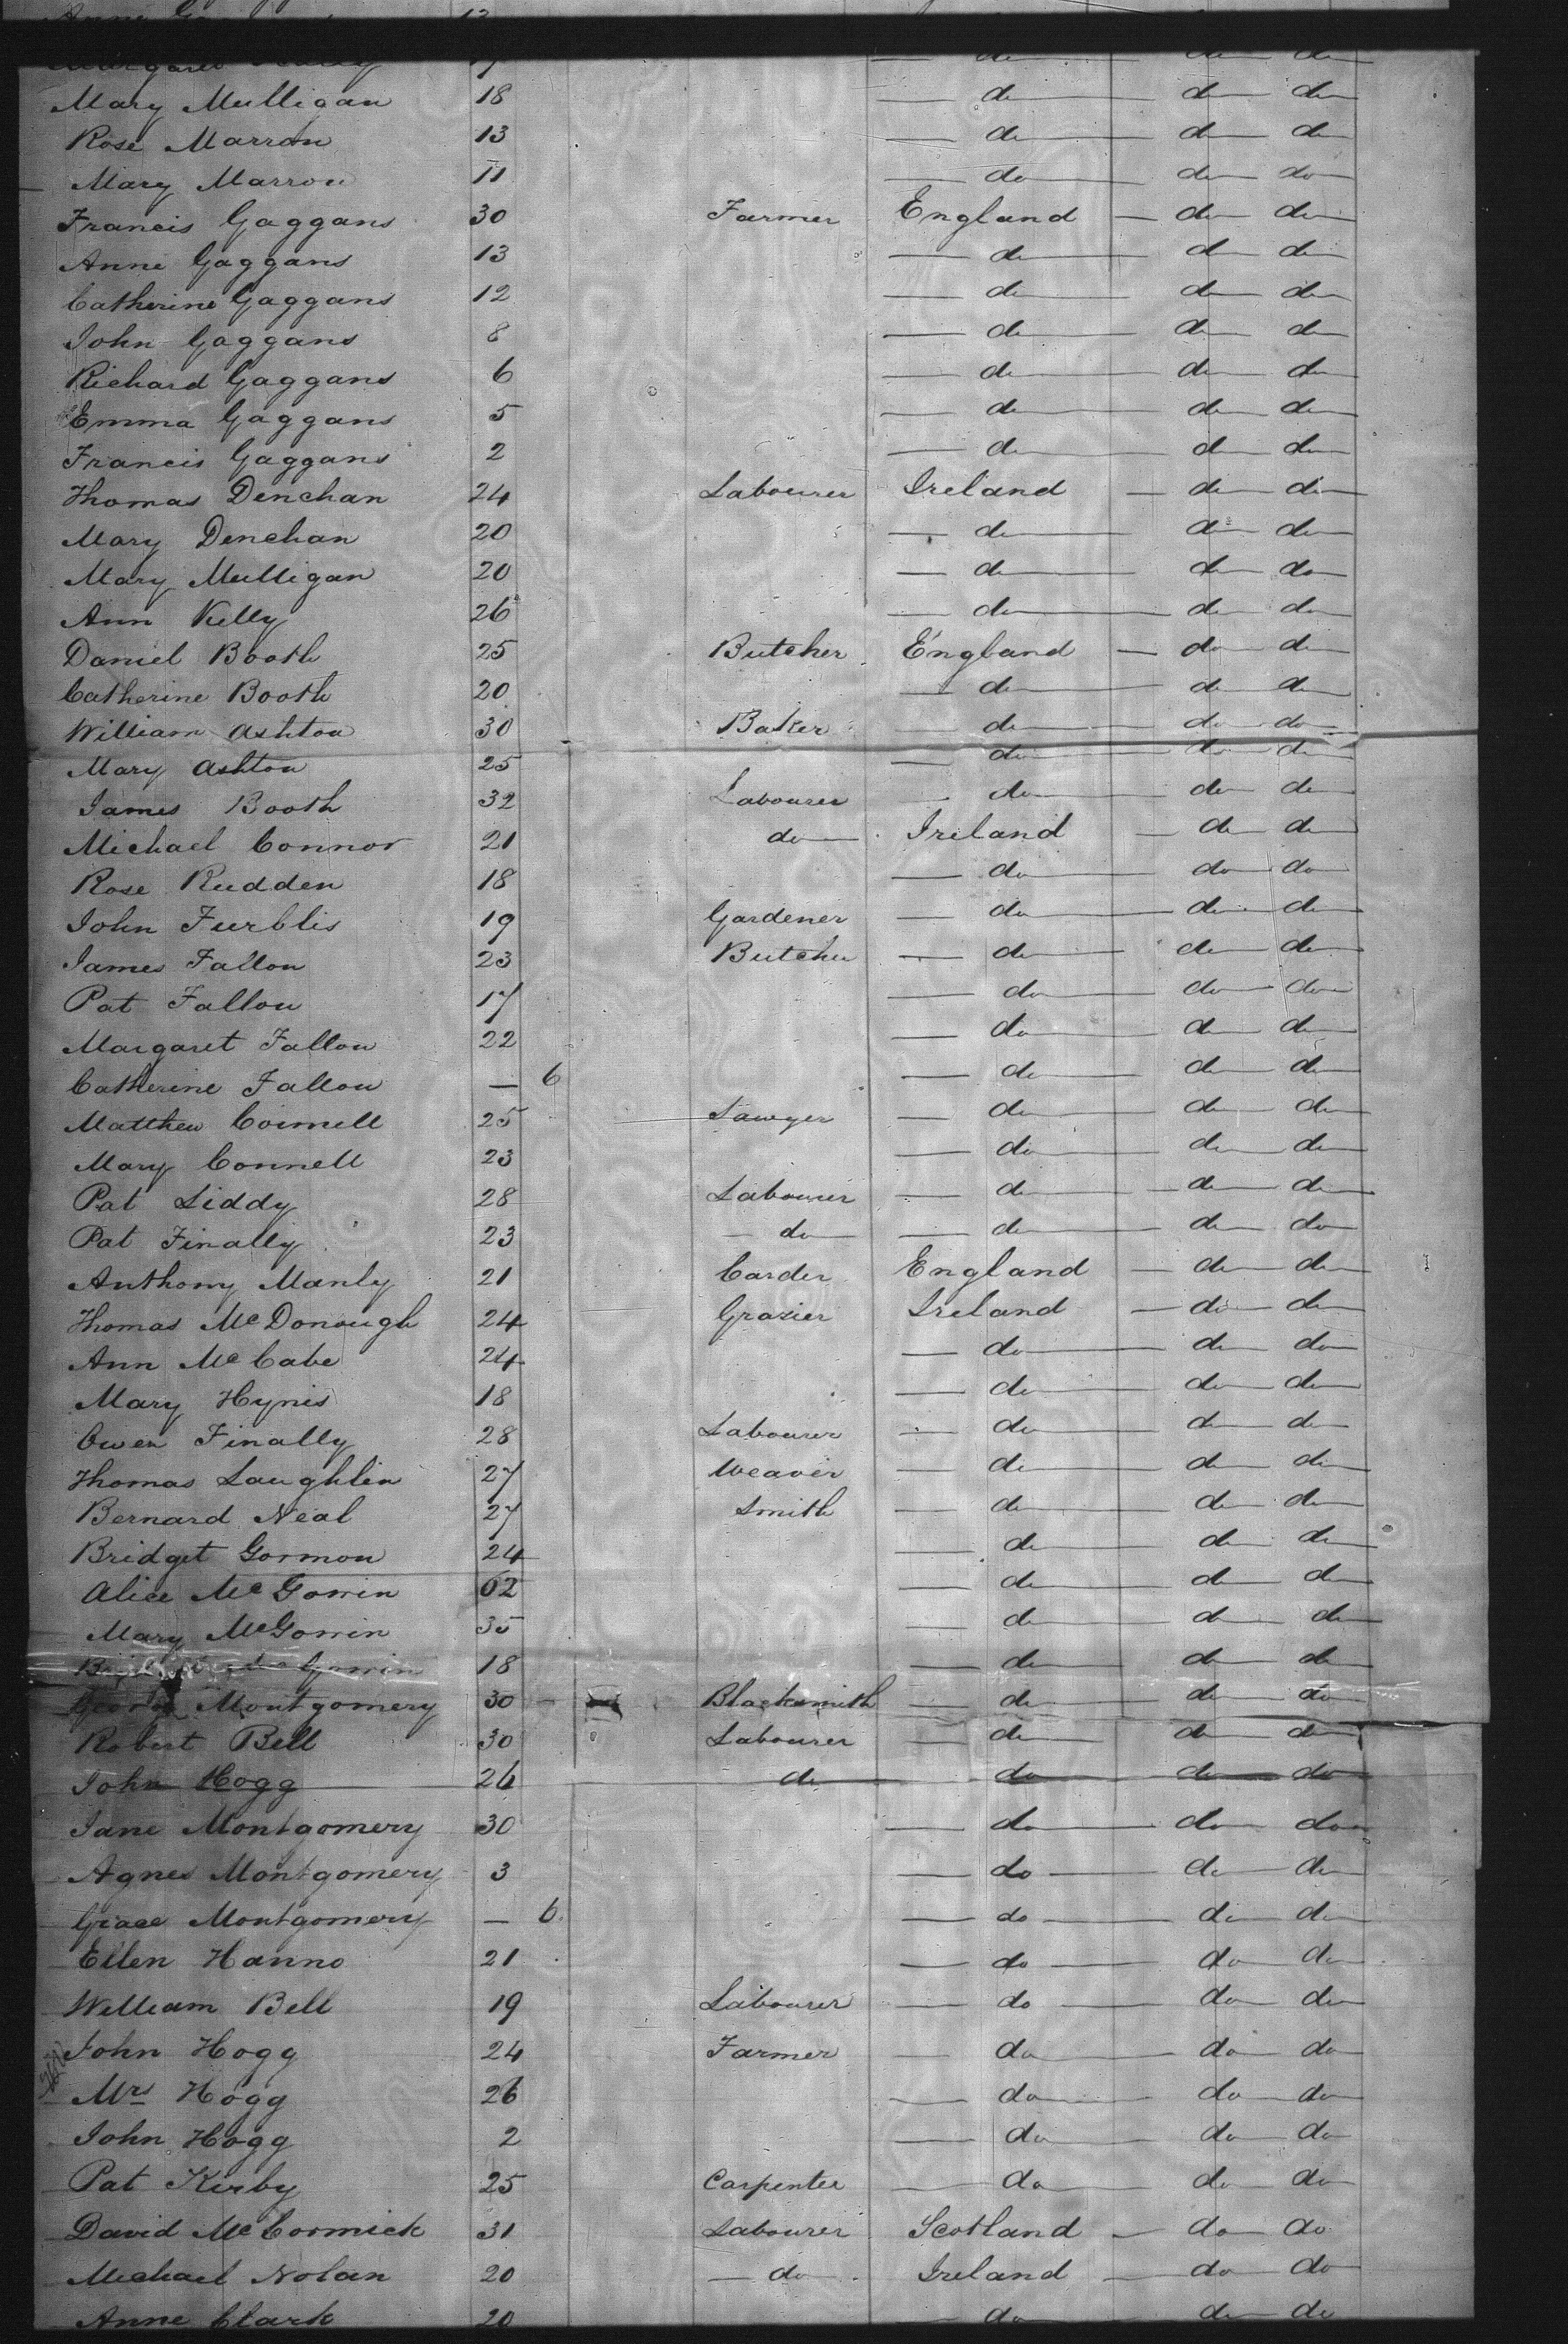 Mary Mulligan 18 do do do
Rose Marron 13 do do do
Mary Marron 11 do do do
Francis Gaggans 30 Farmer England do do
Anne Gaggans 13 do do do
Catherine Gaggans 12 do do do
John Gaggans 8 do do do
Richard Gaggans 6 do do do
Emma Gaggans 5 do do do
Francis Gaggans 2 do do do
Thomas Denehan 24 Labourer Ireland do do
Mary Denehan 20 do do do
Mary Mulligan 20 do do do
Ann Kelly 26 do do do
Daniel Booth 25 Butcher England do do
Catherine Booth 20 do do do
William Ashton 30 Baker do do do
Mary Ashton 25 do do do
James Booth 32 Labourer do do do
Michael Connor 21 do Ireland do do
Rose Rudden 18 do do do
John Furblis 19 Gardener do do do
James Fallon 23 Butcher do do do
Pat Fallon 17 do do do
Margaret Fallon 22 do do do
Catherine Fallon — 6 do do do
Matthew Connell 25 Sawyer do do do
Mary Connell 23 do do do
Pat Liddy 28 Labourer do do do
Pat Finally 23 do do do do
Anthony Manly 21 Carder England do do
Thomas McDonough 24 Grazier Ireland do do
Ann McCabe 24 do do do
Mary Hynis 18 do do do
Owen Finally 28 Labourer do do do
Thomas Laughlin 27 Weaver do do do
Bernard Neal 27 Smith do do do
Bridget Gormon 24 do do do
Alice McGowin 62 do do do
Mary McGowin 35 do do do
18 do do do
George Montgomery 30 Blacksmith do do do
Robert Bell 30 Labourer do do do
John Hogg 26 do do do do
Jane Montgomery 30 do do do
Agnes Montgomery 3 do do do
Grace Montgomery — 6 do do do
Ellen Hanno 21 do do do
William Bell 19 Labourer do do do
John Hogg 24 Farmer do do do
Mrs Hogg 26 do do do
John Hogg 2 do do do
Pat Kirby 25 Carpenter do do do
David McCormick 31 Labourer Scotland do do
Michael Nolan 20 do Ireland do do
Anne Clark 20 do do do